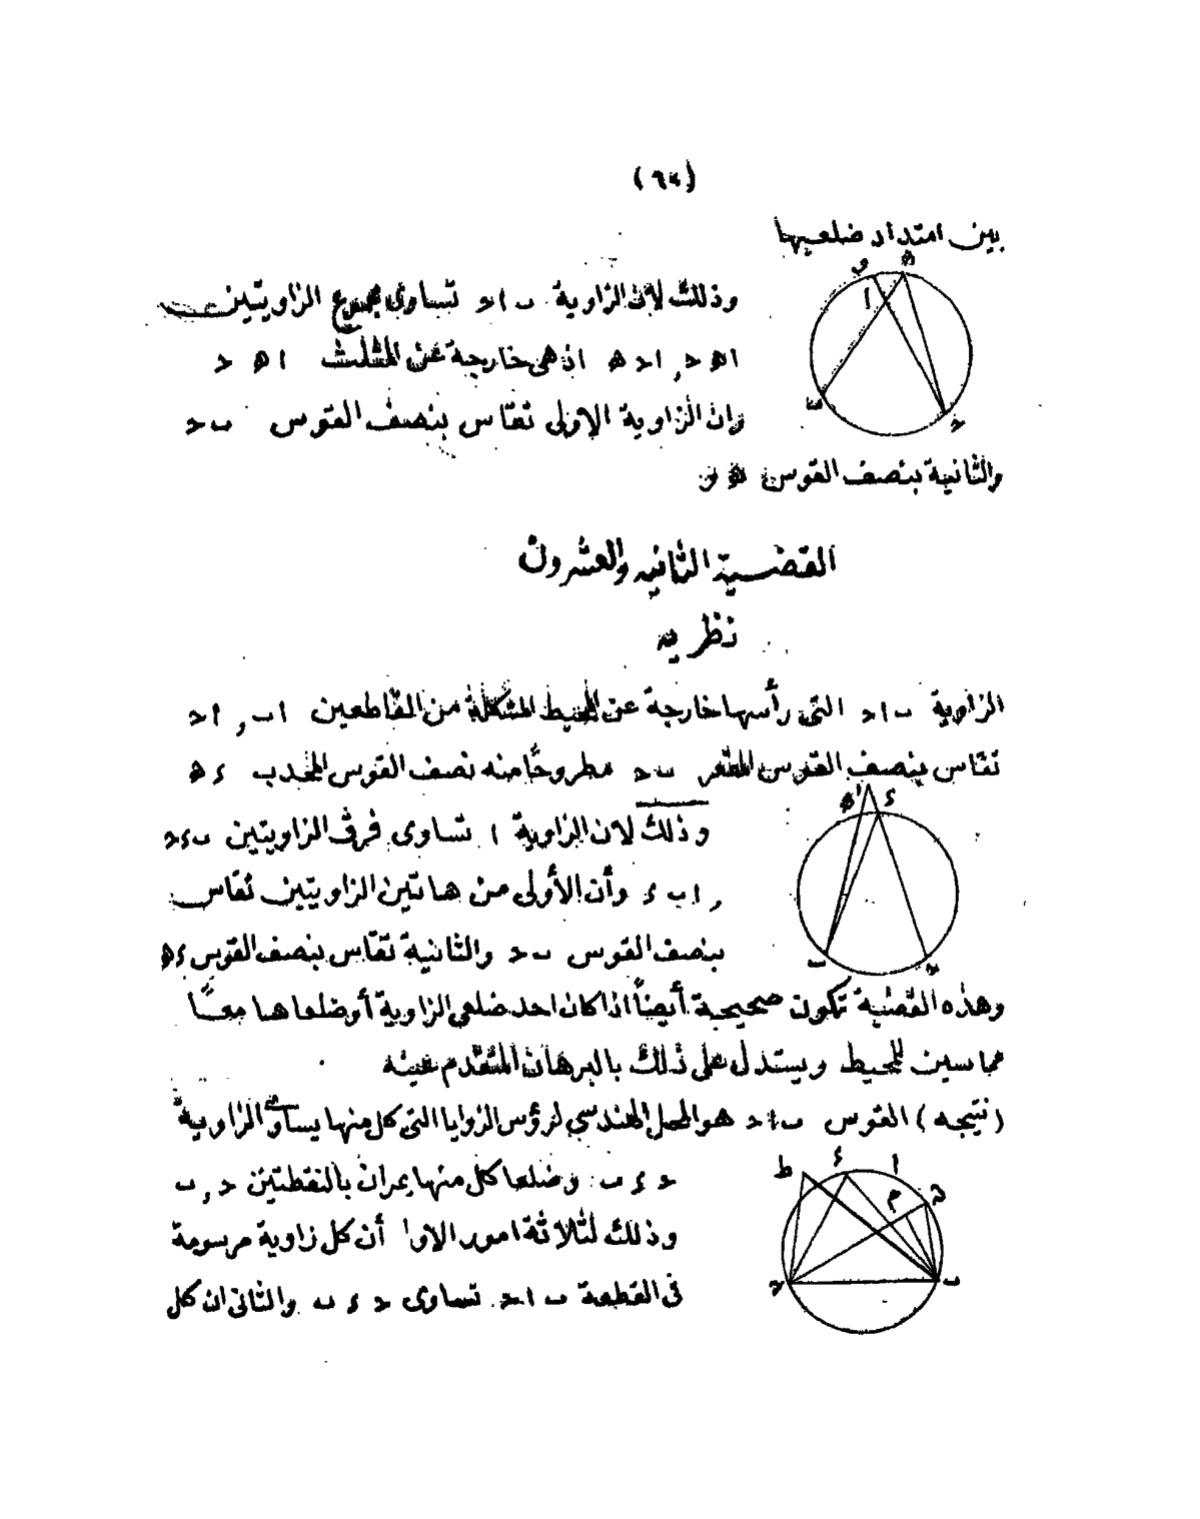 بين امتداد ضلعيها
وذلك لان الزاوية ب ا ح تساوى مجموع الزاويتين
ا ه ح , ا ح ه اذ هى خارجة عن المثلث ا ه ح
وان الزاوية الاولى تقاس بنصف القوس ب ح
والثانية بنصف القوس ه و
القضية الثانيه والعشرون
نظريه
الزاوية ب ا ح التى رأسها خارجة عن المحيط المشكلة من القاطعين ا ب , ا ح
تقاس بنصف القوس المقعر ب ح مطروحًا منه نصف القوس المحدب ء ه
وذلك لان الزاوية ا تساوى فرق الزاويتين ب ء ح
, ا ب ء وأن الأولى من هاتين الزاويتين تقاس
بنصف القوس ب ح والثانية تقاس بنصف القوس ء ه
وهذه القضية تكون صحيحة أيضاً اذا كان احد ضلعى الزاوية أو ضلعاها معًا
مماسين للمحيط ويستدل على ذلك بالبرهان المتقدم عينه
(نتيجه) القوس ب ا ح هو المحل الهندسي لرؤس الزوايا التى كل منها يساوى الزاوية
ح ء ب وضلعا كل منها يمران بالنقطتين ح , ب
وذلك لثلاثة امور الاول أن كل زاوية مرسومة
فى القطعة ب ا ح تساوى ح ء ب والثانى ان كل